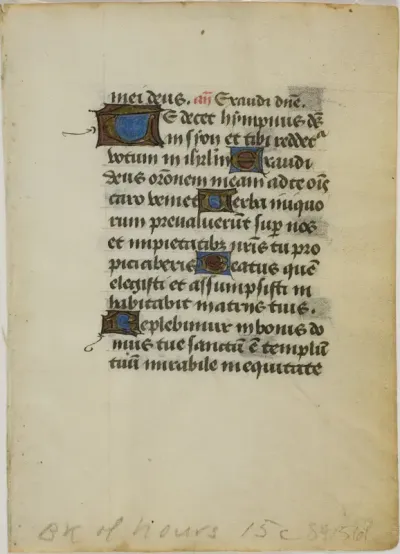 mei deus. an̄ Exaudi dn̄e.
Te decet hympnus ds̄
in syon et tibi reddetᵘʳ
votum in ihrlm̄ Exaudi
deus orōnem meam ad te oīs
caro veniet Verba iniquo
rum prevaluerūt sup̱ nos
et impietatibꝫ nr̄is tu pro
piciaberis Beatus quē
elegisti et assumpsisti in
habitabit in atriis tuis.
Replebimur in bonis do
mus tue sanctū ē templū
tuū mirabile in equitate
BK of Hours 15c